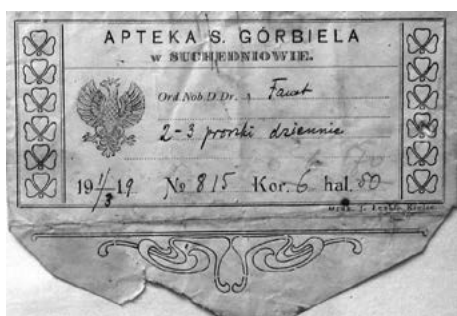 APTEKA S. GÓRBIELA
w SUCHEDNIOWIE.
Ord. Nob. D. Dr.
2-3 proszki dziennie
19 1/3 19 № 815 Kor. 6 hal. 50
Druk. J. Kielce.